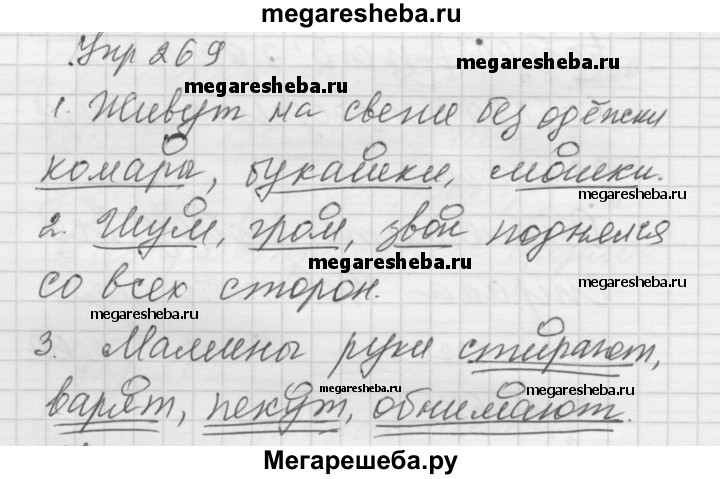 megaresheba.ru
Упр 269
megaresheba.ru
megaresheba.ru
1. Живут на свете без одёжки
комары, букашки, мошки.
megaresheba.ru
2. Шум, гром, звон поднялся
megaresheba.ru
со всех сторон.
megaresheba.ru
3. Мамины руки стирают,
megaresheba.ru
megaresheba.ru
варят, пекут, обнимают.
Мегарешеба.ру